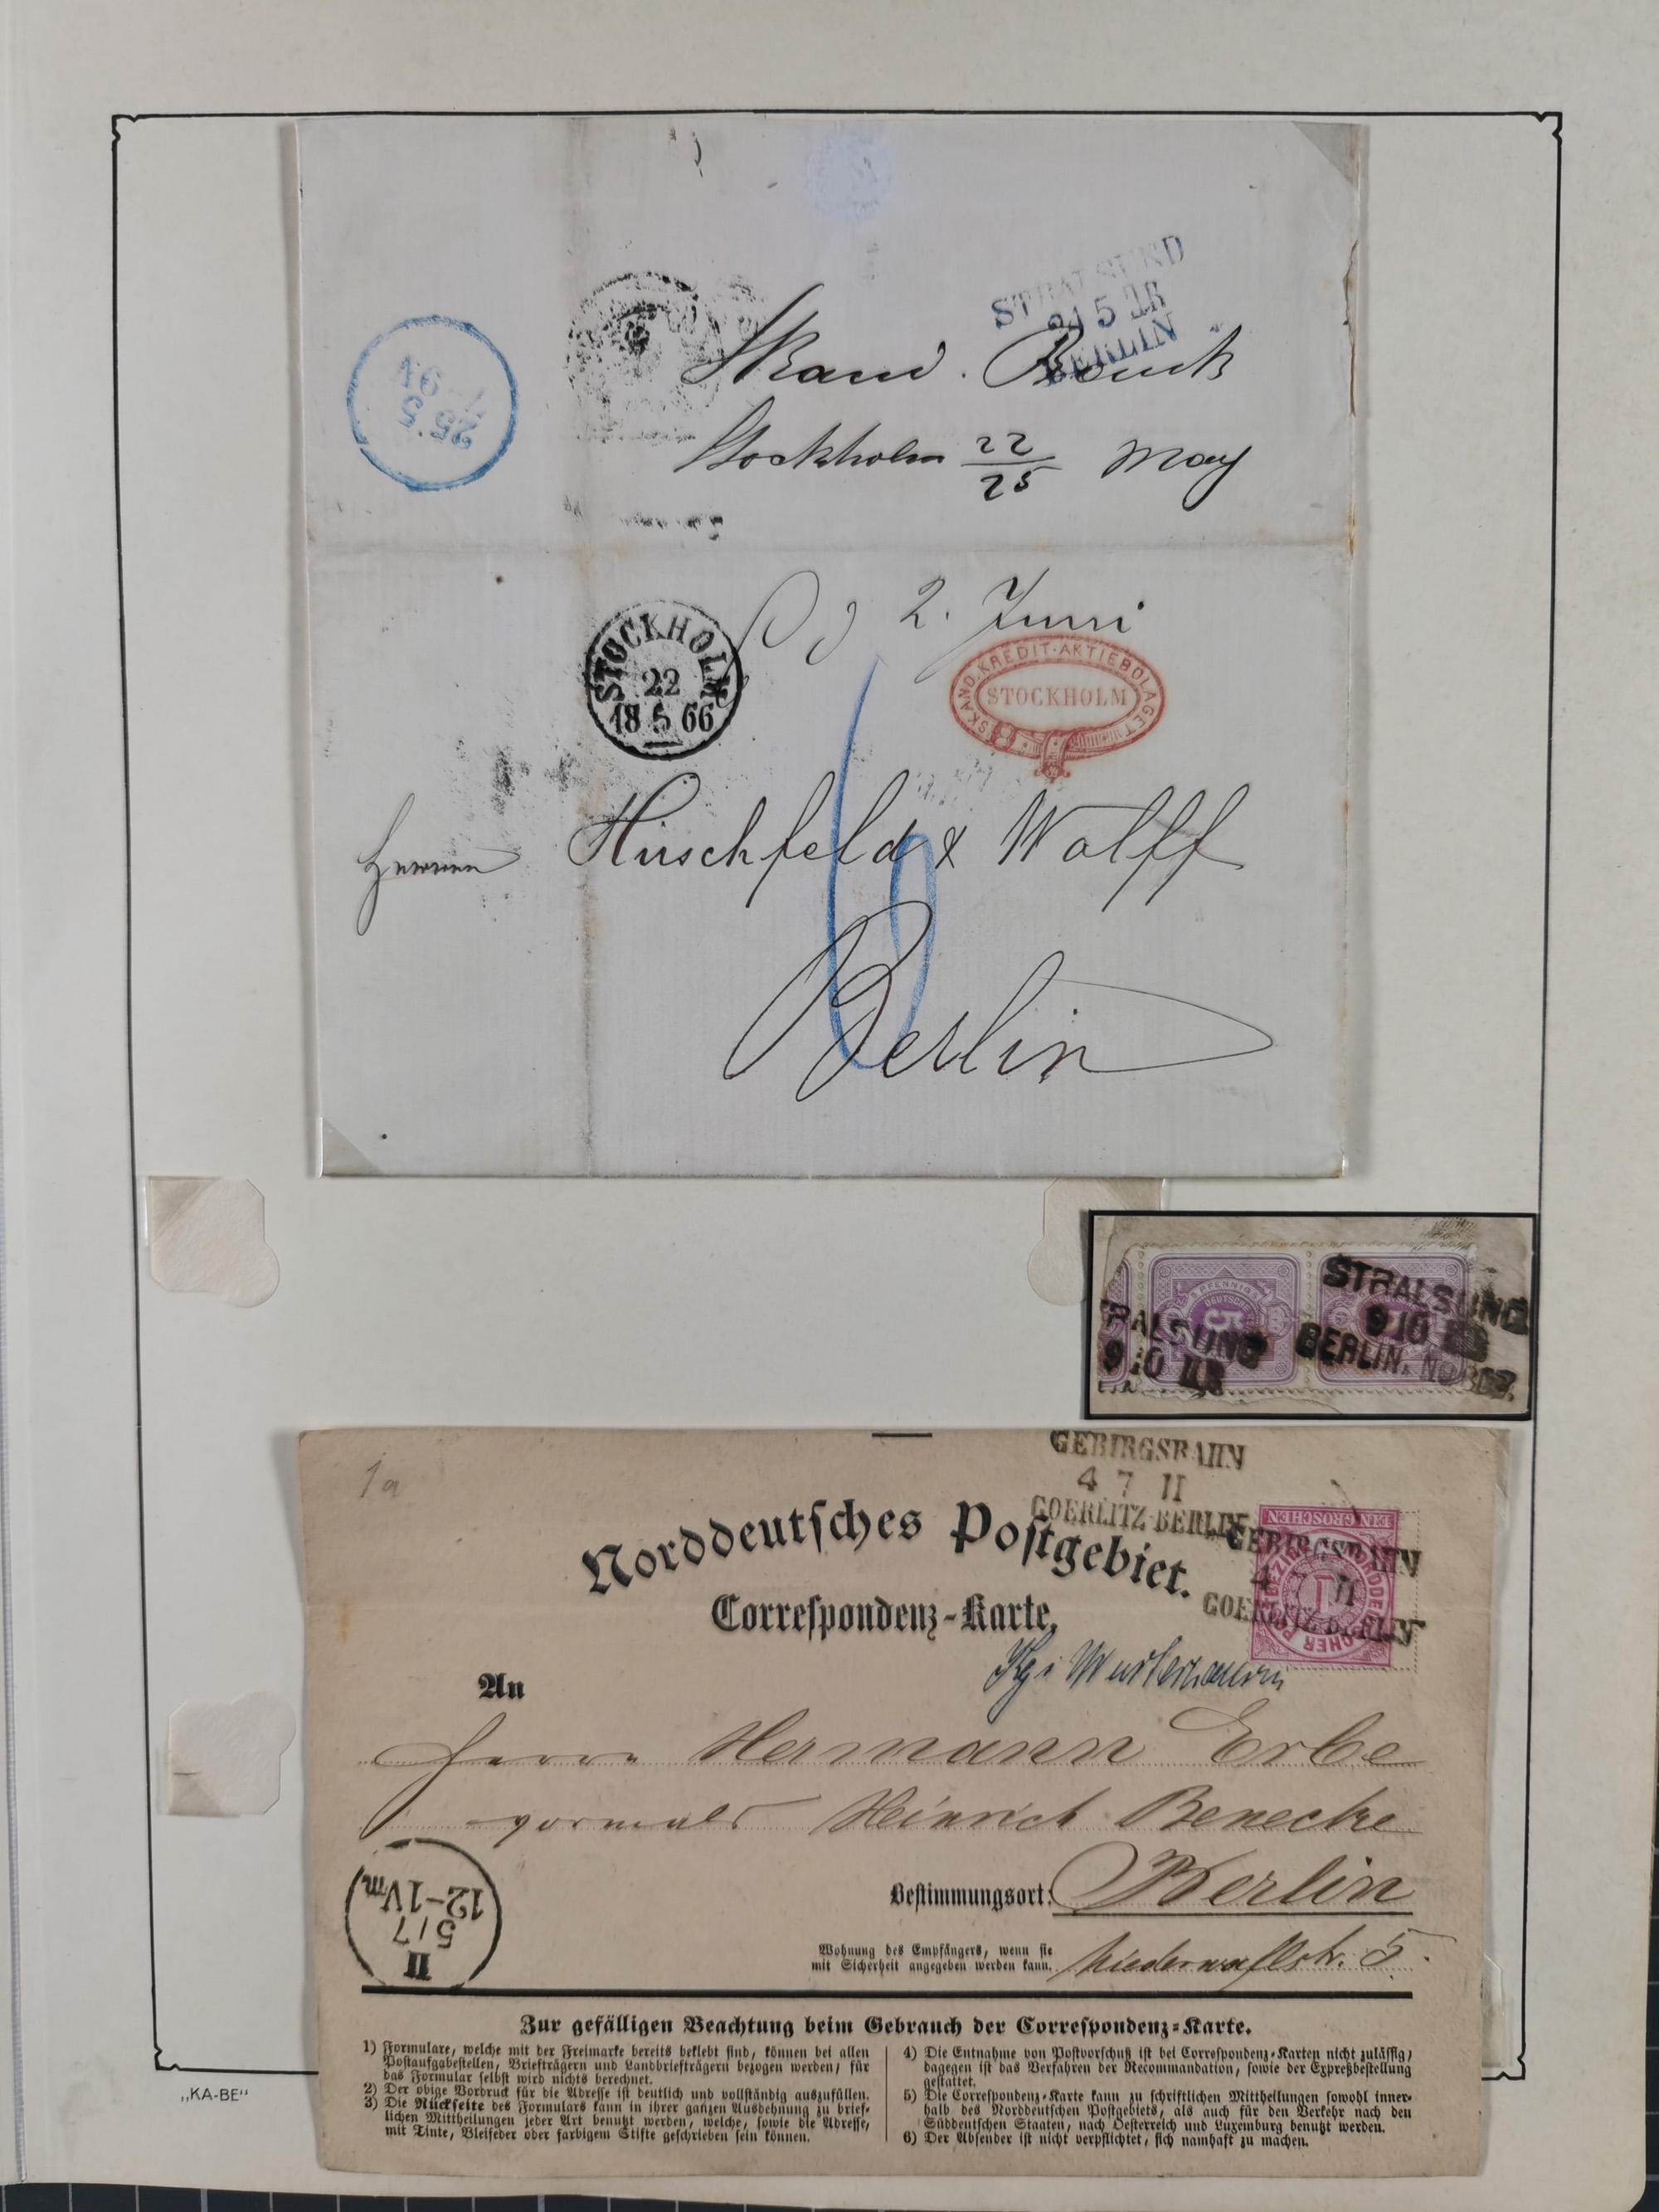 STRALSUND
5 II R
BERLIN
25.5.
Skand. Bank
Stockholm 22/25 May
2. Juni
STOCKHOLM
22
18 5 66
SKAND. KREDIT-AKTIEBOLAGET
STOCKHOLM
6
Herren Hirschfeld & Wolff
Berlin
STRALSUND
9 10
BERLIN. NORDB.
RALSUND
9 10 II R
5 PFENNIGE
1a
GEBIRGSBAHN
4 7 II
GOERLITZ-BERLIN
GEBIRGSBAHN
4 7 II
GOERLITZ-BERLIN
EIN GROSCHEN
1
Norddeutsches Postgebiet.
Correspondenz-Karte.
Kgs Wusterhausen
An
Herrn Hermann Erbe
vormals Heinrich Benecke
Bestimmungsort: Berlin
Wohnung des Empfängers, wenn sie
mit Sicherheit angegeben werden kann.
Niederwallstr. 5.
II
5/7
12-1Vm
Zur gefälligen Beachtung beim Gebrauch der Correspondenz-Karte.
1) Formulare, welche mit der Freimarke bereits beklebt sind, können bei allen
Postaufgabestellen, Briefträgern und Landbriefträgern bezogen werden, für
das Formular selbst wird nichts berechnet.
2) Der obige Vordruck für die Adresse ist deutlich und vollständig auszufüllen.
3) Die Rückseite des Formulars kann in ihrer ganzen Ausdehnung zu brief-
lichen Mittheilungen jeder Art benutzt werden, welche, sowie die Adresse,
mit Tinte, Bleifeder oder farbigem Stifte geschrieben sein können.
4) Die Entnahme von Postvorschuß ist bei Correspondenz-Karten nicht zulässig,
dagegen ist das Verfahren der Recommandation, sowie der Expreßbestellung
gestattet.
5) Die Correspondenz-Karte kann zu schriftlichen Mittheilungen sowohl inner-
halb des Norddeutschen Postgebiets, als auch für den Verkehr nach den
Süddeutschen Staaten, nach Oesterreich und Luxemburg benutzt werden.
6) Der Absender ist nicht verpflichtet, sich namhaft zu machen.
„KA-BE“